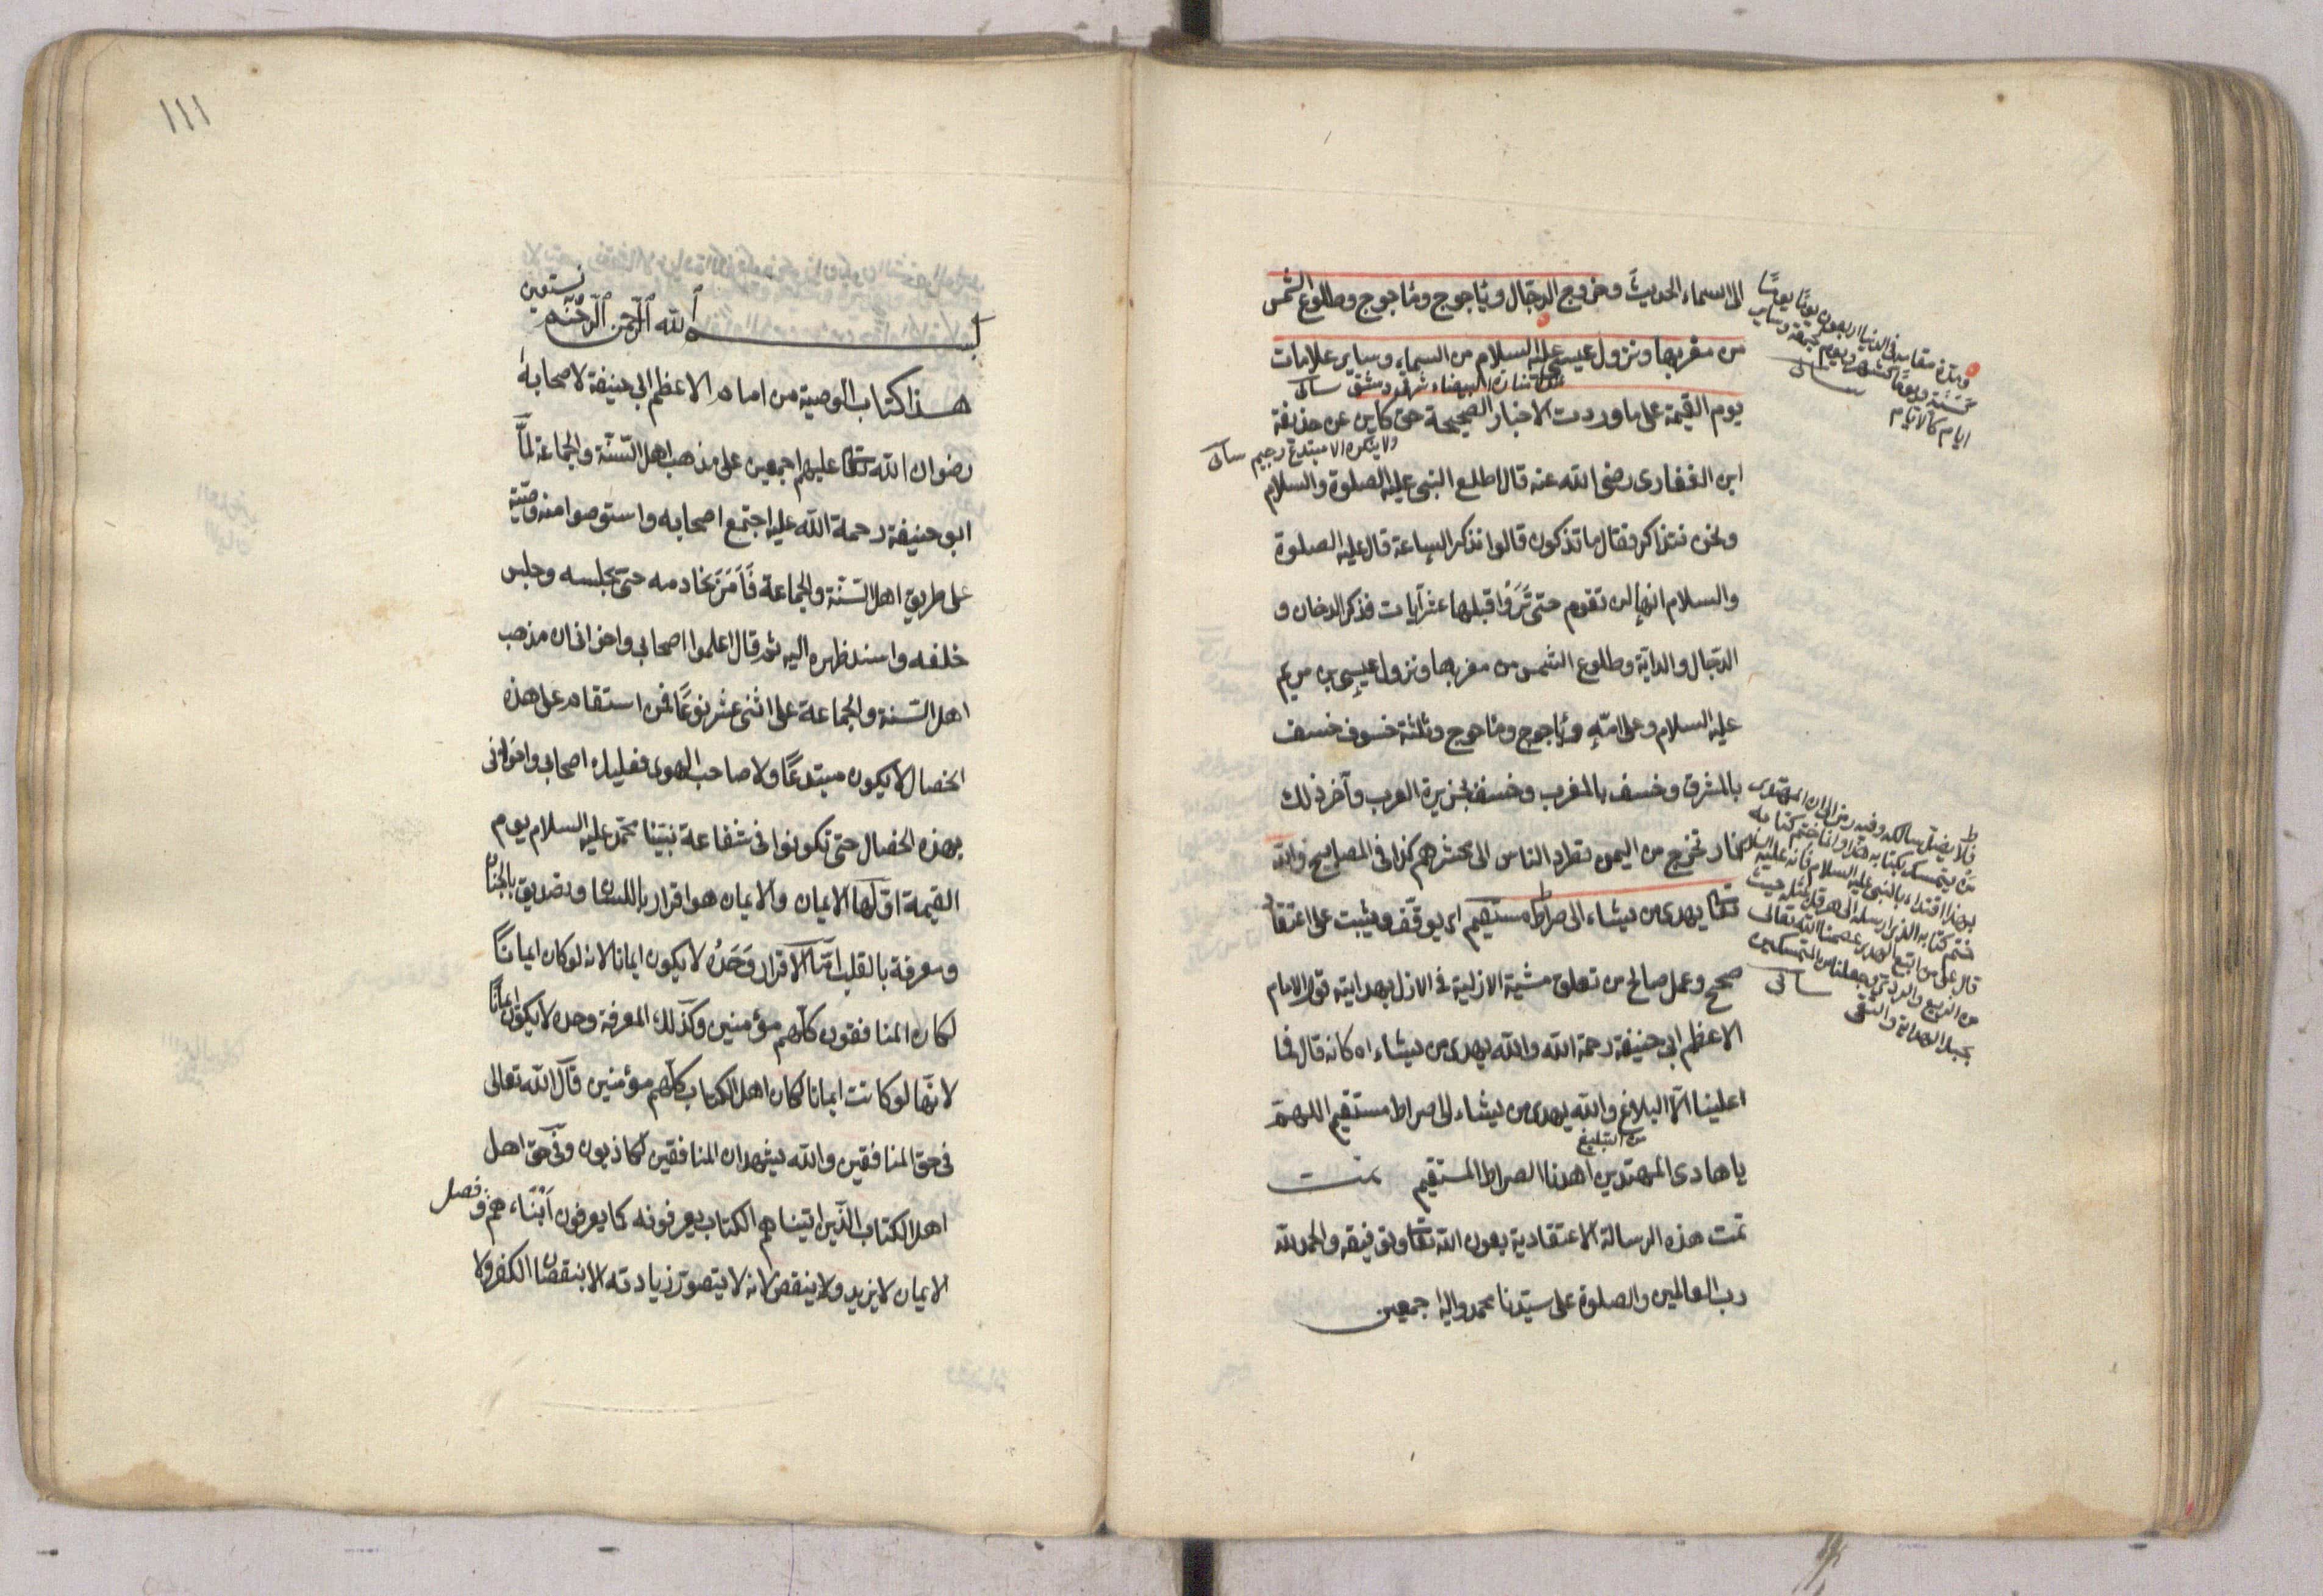 الى السماء الحديث وخروج الدجال وياجوج وماجوج وطلوع الشمس
من مغربها ونزول عيسى عليه السلام من السماء وساير علامات
يوم القيمة على ما وردت الاخبار الصحيحة حق كاين عن حذيفة
ابن الغفارى رضى الله عنه قال اطلع النبى عليه الصلوة والسلام
ونحن نتذاكر فقال ما تذكرون قالوا نذكر الساعة قال عليه الصلوة
والسلام انها لن تقوم حتى تروا قبلها عشر آيات فذكر الدخان و
الدجال والدابة وطلوع الشمس من مغربها ونزول عيسى بن مريم
عليه السلام وعلى امّه وياجوج وماجوج وثلثة خسوف خسف
بالمشرق وخسف بالمغرب وخسف بجزيرة العرب وآخر ذلك
نار تخرج من اليمن تطرد الناس الى محشرهم كذا فى المصابيح والله
تعالى يهدى من يشاء الى صراط مستقيم اى يوقف ويثبت على اعتقاد
صحيح وعمل صالح من تعلق مشية الازلية فى الازل بهدايته قول الامام
الاعظم ابى حنيفة رحمة الله والله يهدى من يشاء اه كانه قال فما
علينا الا البلاغ والله يهدى من يشاء الى صراط مستقيم اللهم
من التبليغ
يا هادى المهتدين اهدنا الصراط المستقيم تمت
تمت هذه الرسالة الاعتقادية بعون الله تعالى وتوفيقه والحمد لله
رب العالمين والصلوة على سيدنا محمد واله اجمعين
البيضاء شرقى دمشق
ولا ينكره الا مبتدع رجيم
ومدة مقامه فى الدنيا اربعون يوما يوما
كسنة ويوما كشهر ويوم كجمعة وساير
ايام كالايام
فلا يضل سالكه وفيه رمز الى ان المهتدى
من يتمسك بكتابه هذا وانما ختم كتابه
بهذا اقتداء بالنبى عليه السلام فانه عليه السلام
ختم كتابه الذى ارسله الى هرقل بمثله حيث
قال على من اتبع الهدى عصمنا الله تعالى
من الزيغ والردى وجعلنا من المتمسكين
بحبل الهداية والتقى
١١١
نستعين
بسم الله الرحمن الرحيم
هذا كتاب الوصية من امام الاعظم ابى حنيفة لاصحابه
رضوان الله تعالى عليهم اجمعين على مذهب اهل السنة والجماعة لما
ابو حنيفة رحمة الله عليه اجتمع اصحابه واستوصوا منه وصية
على طريق اهل السنة والجماعة فامر بخادمه حتى يجلسه وجلس
خلفه واسند ظهره اليه ثم قال اعلموا اصحابى واخوانى ان مذهب
اهل السنة والجماعة على اثنى عشر نوعا فمن استقام على هذه
الخصال لا يكون مبتدعا ولا صاحب الهوى فعليكم اصحابى واخوانى
بهذه الخصال حتى تكونوا فى شفاعة نبينا محمد عليه السلام يوم
القيمة اولها الايمان والايمان هو اقرار باللسان وتصديق بالجنان
ومعرفة بالقلب اما الاقرار وحده لا يكون ايمانا لانه لو كان ايمانا
لكان المنافقون كلهم مؤمنين وكذلك المعرفة وحده لا يكون ايمانا
لانها لو كانت ايمانا لكان اهل الكتاب كلهم مؤمنين قال الله تعالى
فى حق المنافقين والله يشهد ان المنافقين لكاذبون وفى حق اهل
اهل الكتاب الذين اتيناهم الكتاب يعرفونه كما يعرفون ابناءهم فصل
الايمان لا يزيد ولا ينقص لانه لا يتصور زيادته الا بنقصان الكفر ولا